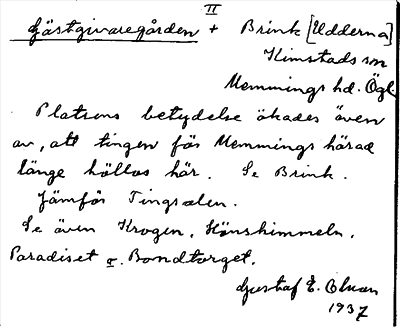 II
Gästgivaregården + Brink [Udderna]
Kimstads sn
Memmings hd. Ögl.
Platsens betydelse ökades även
av, att tingen för Memmings härad
länge höllos här. Se Brink.
Jämför Tingsalen.
Se även Krogen, Hönshimmeln,
Paradiset o. Bondtorget.
Gustaf E. Olson
1937